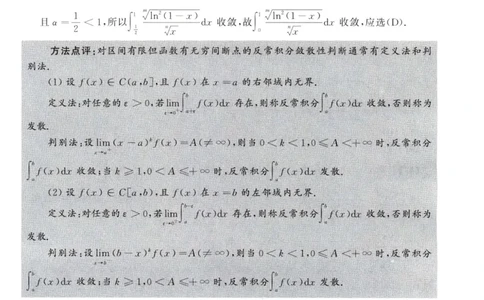 且 a = 1/2 < 1,所以∫_{1/2}^{1} \sqrt[m]{ln²(1-x)}/\sqrt[n]{x} dx 收敛,故∫_0^1 \sqrt[m]{ln²(1-x)}/\sqrt[n]{x} dx 收敛,应选(D).
方法点评:对区间有限但函数有无穷间断点的反常积分敛散性判断通常有定义法和判
别法.
(1) 设 f(x) ∈ C(a,b],且 f(x) 在 x = a 的右邻域内无界.
定义法:对任意的 ε > 0,若 lim_{ε→0⁺} ∫_{a+ε}^b f(x)dx 存在,则称反常积分∫_a^b f(x)dx 收敛,否则称为
发散.
判别法:设 lim_{x→a⁺} (x-a)^k f(x) = A(≠∞),则当 0 < k < 1,0 ≤ A < +∞ 时,反常积分
∫_a^b f(x)dx 收敛;当 k ≥ 1,0 < A ≤ +∞ 时,反常积分∫_a^b f(x)dx 发散.
(2) 设 f(x) ∈ C[a,b),且 f(x) 在 x = b 的左邻域内无界.
定义法:对任意的 ε > 0,若 lim_{ε→0⁺} ∫_a^{b-ε} f(x)dx 存在,则称反常积分∫_a^b f(x)dx 收敛,否则称为
发散.
判别法:设 lim_{x→b⁻} (b-x)^k f(x) = A(≠∞),则当 0 < k < 1,0 ≤ A < +∞ 时,反常积分
∫_a^b f(x)dx 收敛;当 k ≥ 1,0 < A ≤ +∞ 时,反常积分∫_a^b f(x)dx 发散.